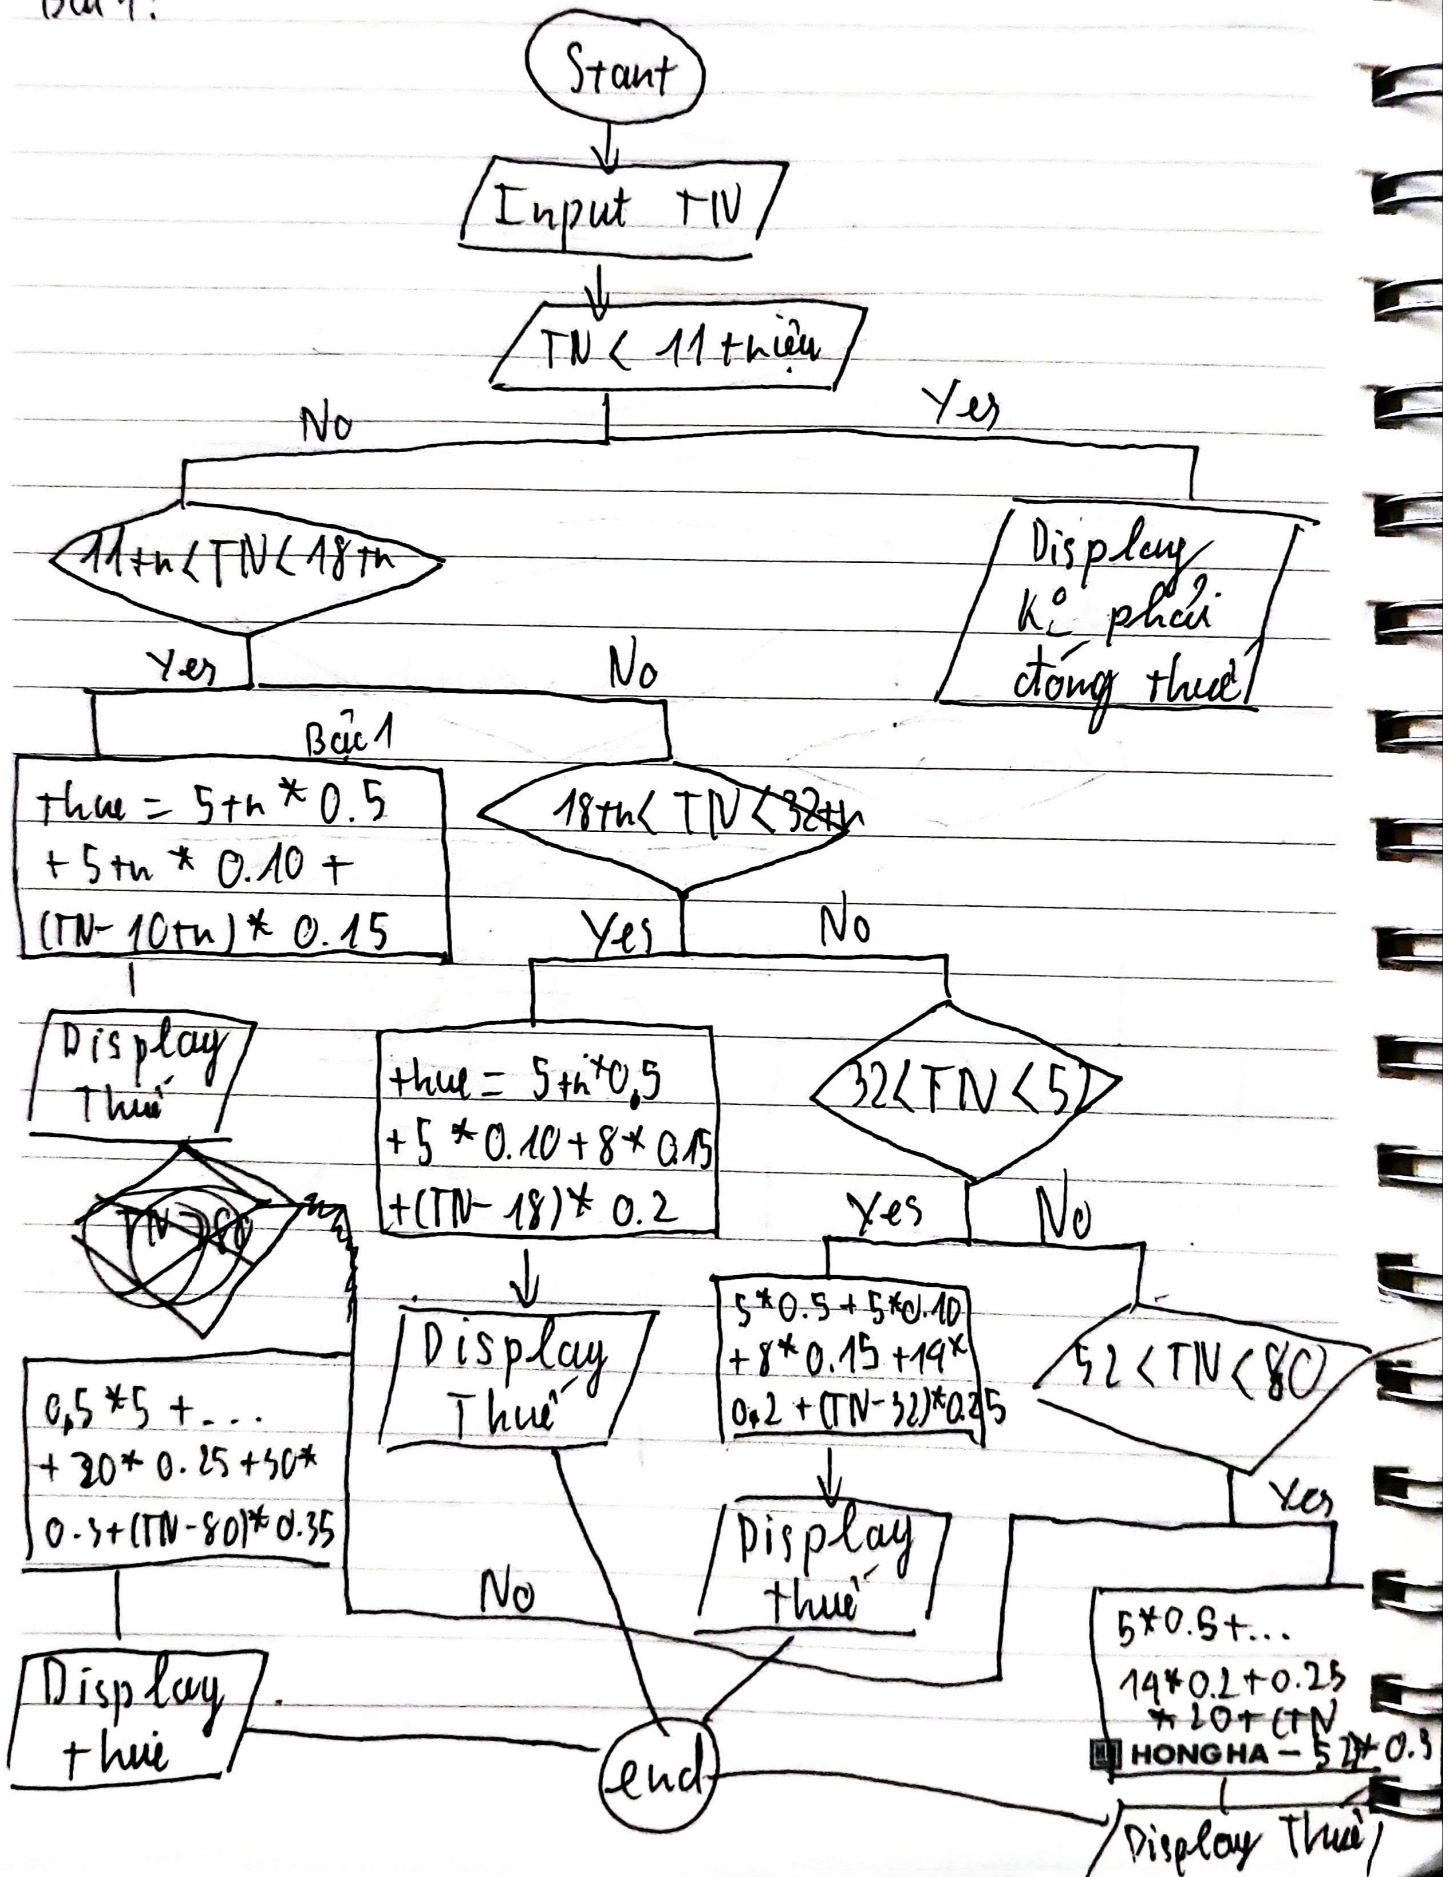 Bài 1:
Start
Input TN
TN < 11 triệu
No
Yes
11tr < TN < 18tr
Display
K° phải
đóng thuế
Yes
No
Bậc 1
thue = 5tr * 0.5
+ 5tr * 0.10 +
(TN - 10tr) * 0.15
18tr < TN < 32tr
Yes
No
Display
Thuế
thue = 5tr * 0,5
+ 5 * 0.10 + 8 * 0.15
+ (TN - 18) * 0.2
32 < TN < 52
TN > 80
Yes
No
Display
Thuế
5 * 0.5 + 5 * 0.10
+ 8 * 0.15 + 14 *
0,2 + (TN - 32) * 0.25
52 < TN < 80
0,5 * 5 + ...
+ 20 * 0.25 + 30 *
0.3 + (TN - 80) * 0.35
Yes
Display
thuế
No
5 * 0.5 + ...
14 * 0.2 + 0.25
* 20 + (TN
HONG HA - 52) * 0.3
Display
thuế
end
Display Thuế